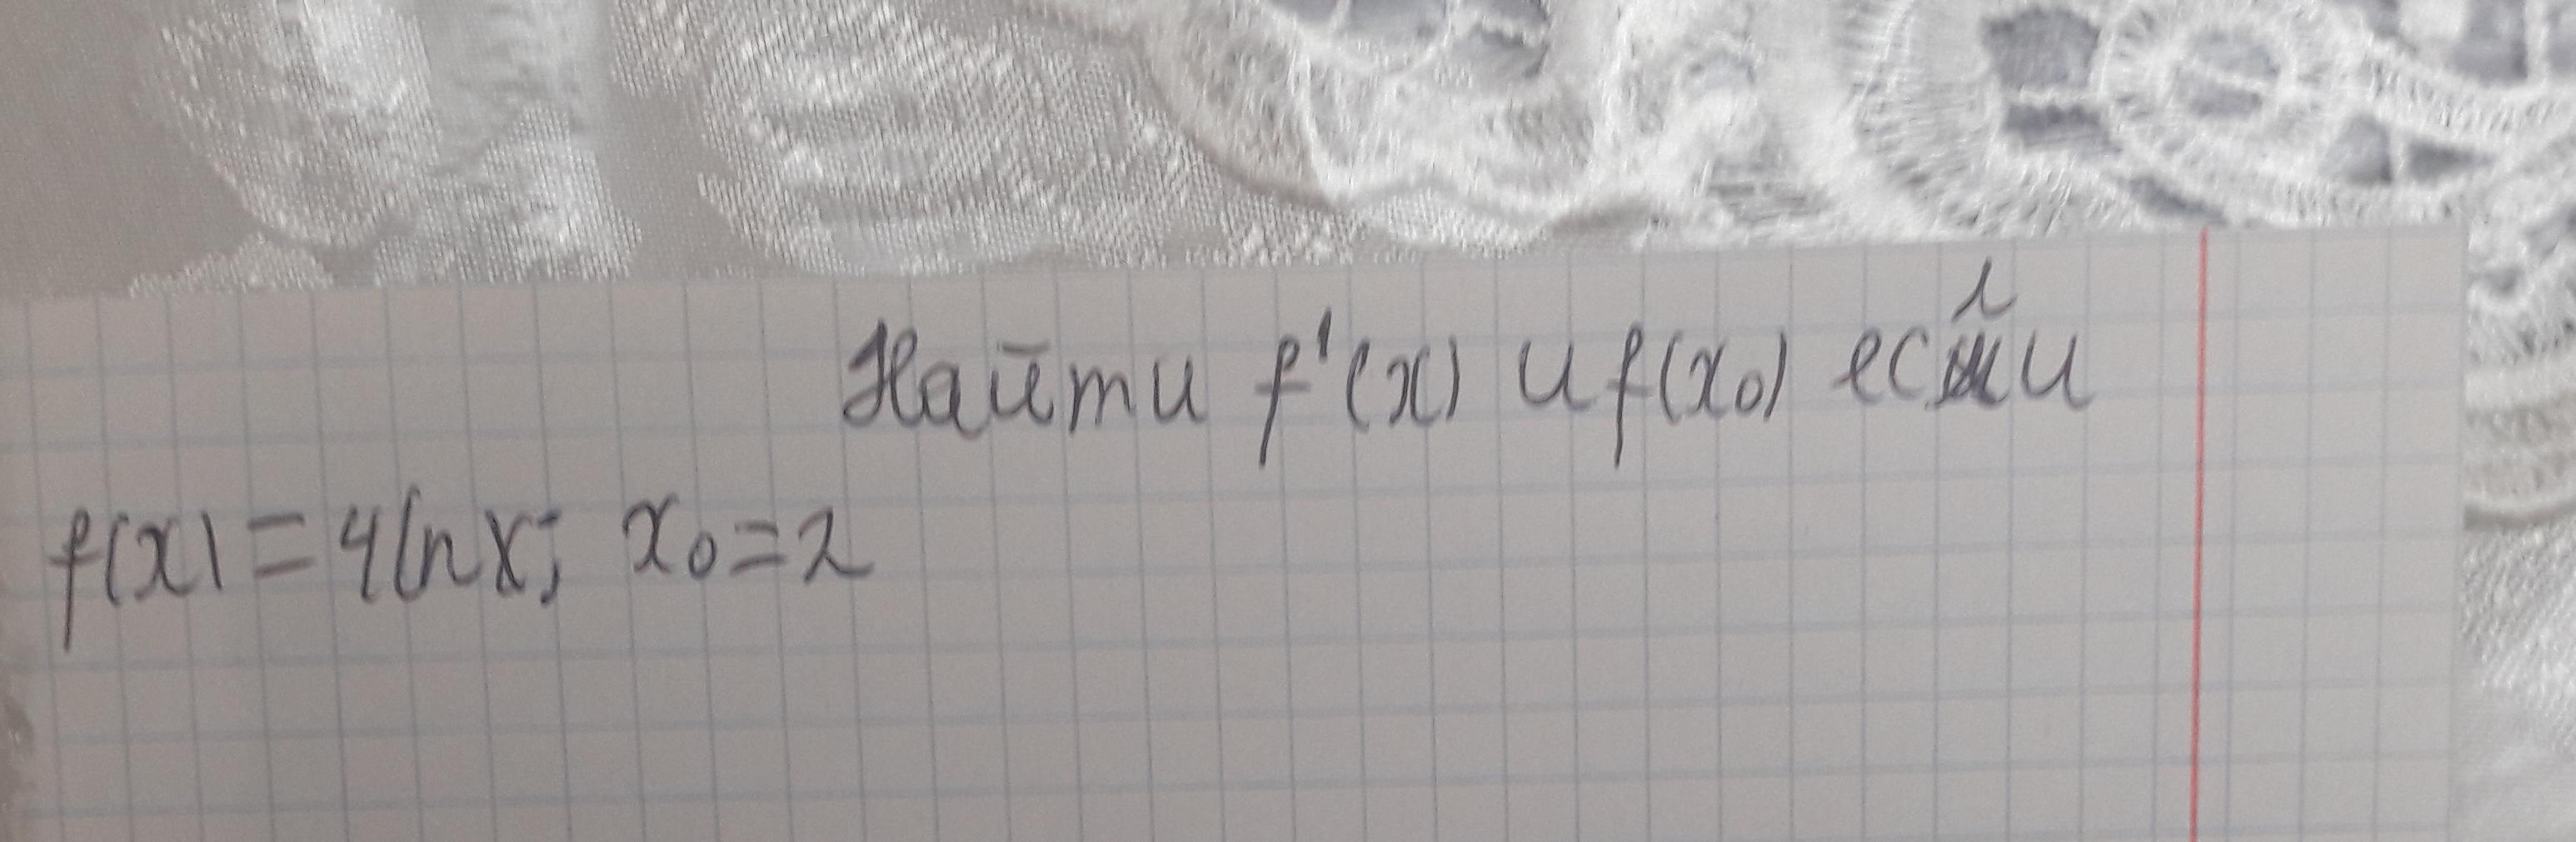 Найти f'(x) и f(x₀) если
f(x) = 4lnx; x₀=2